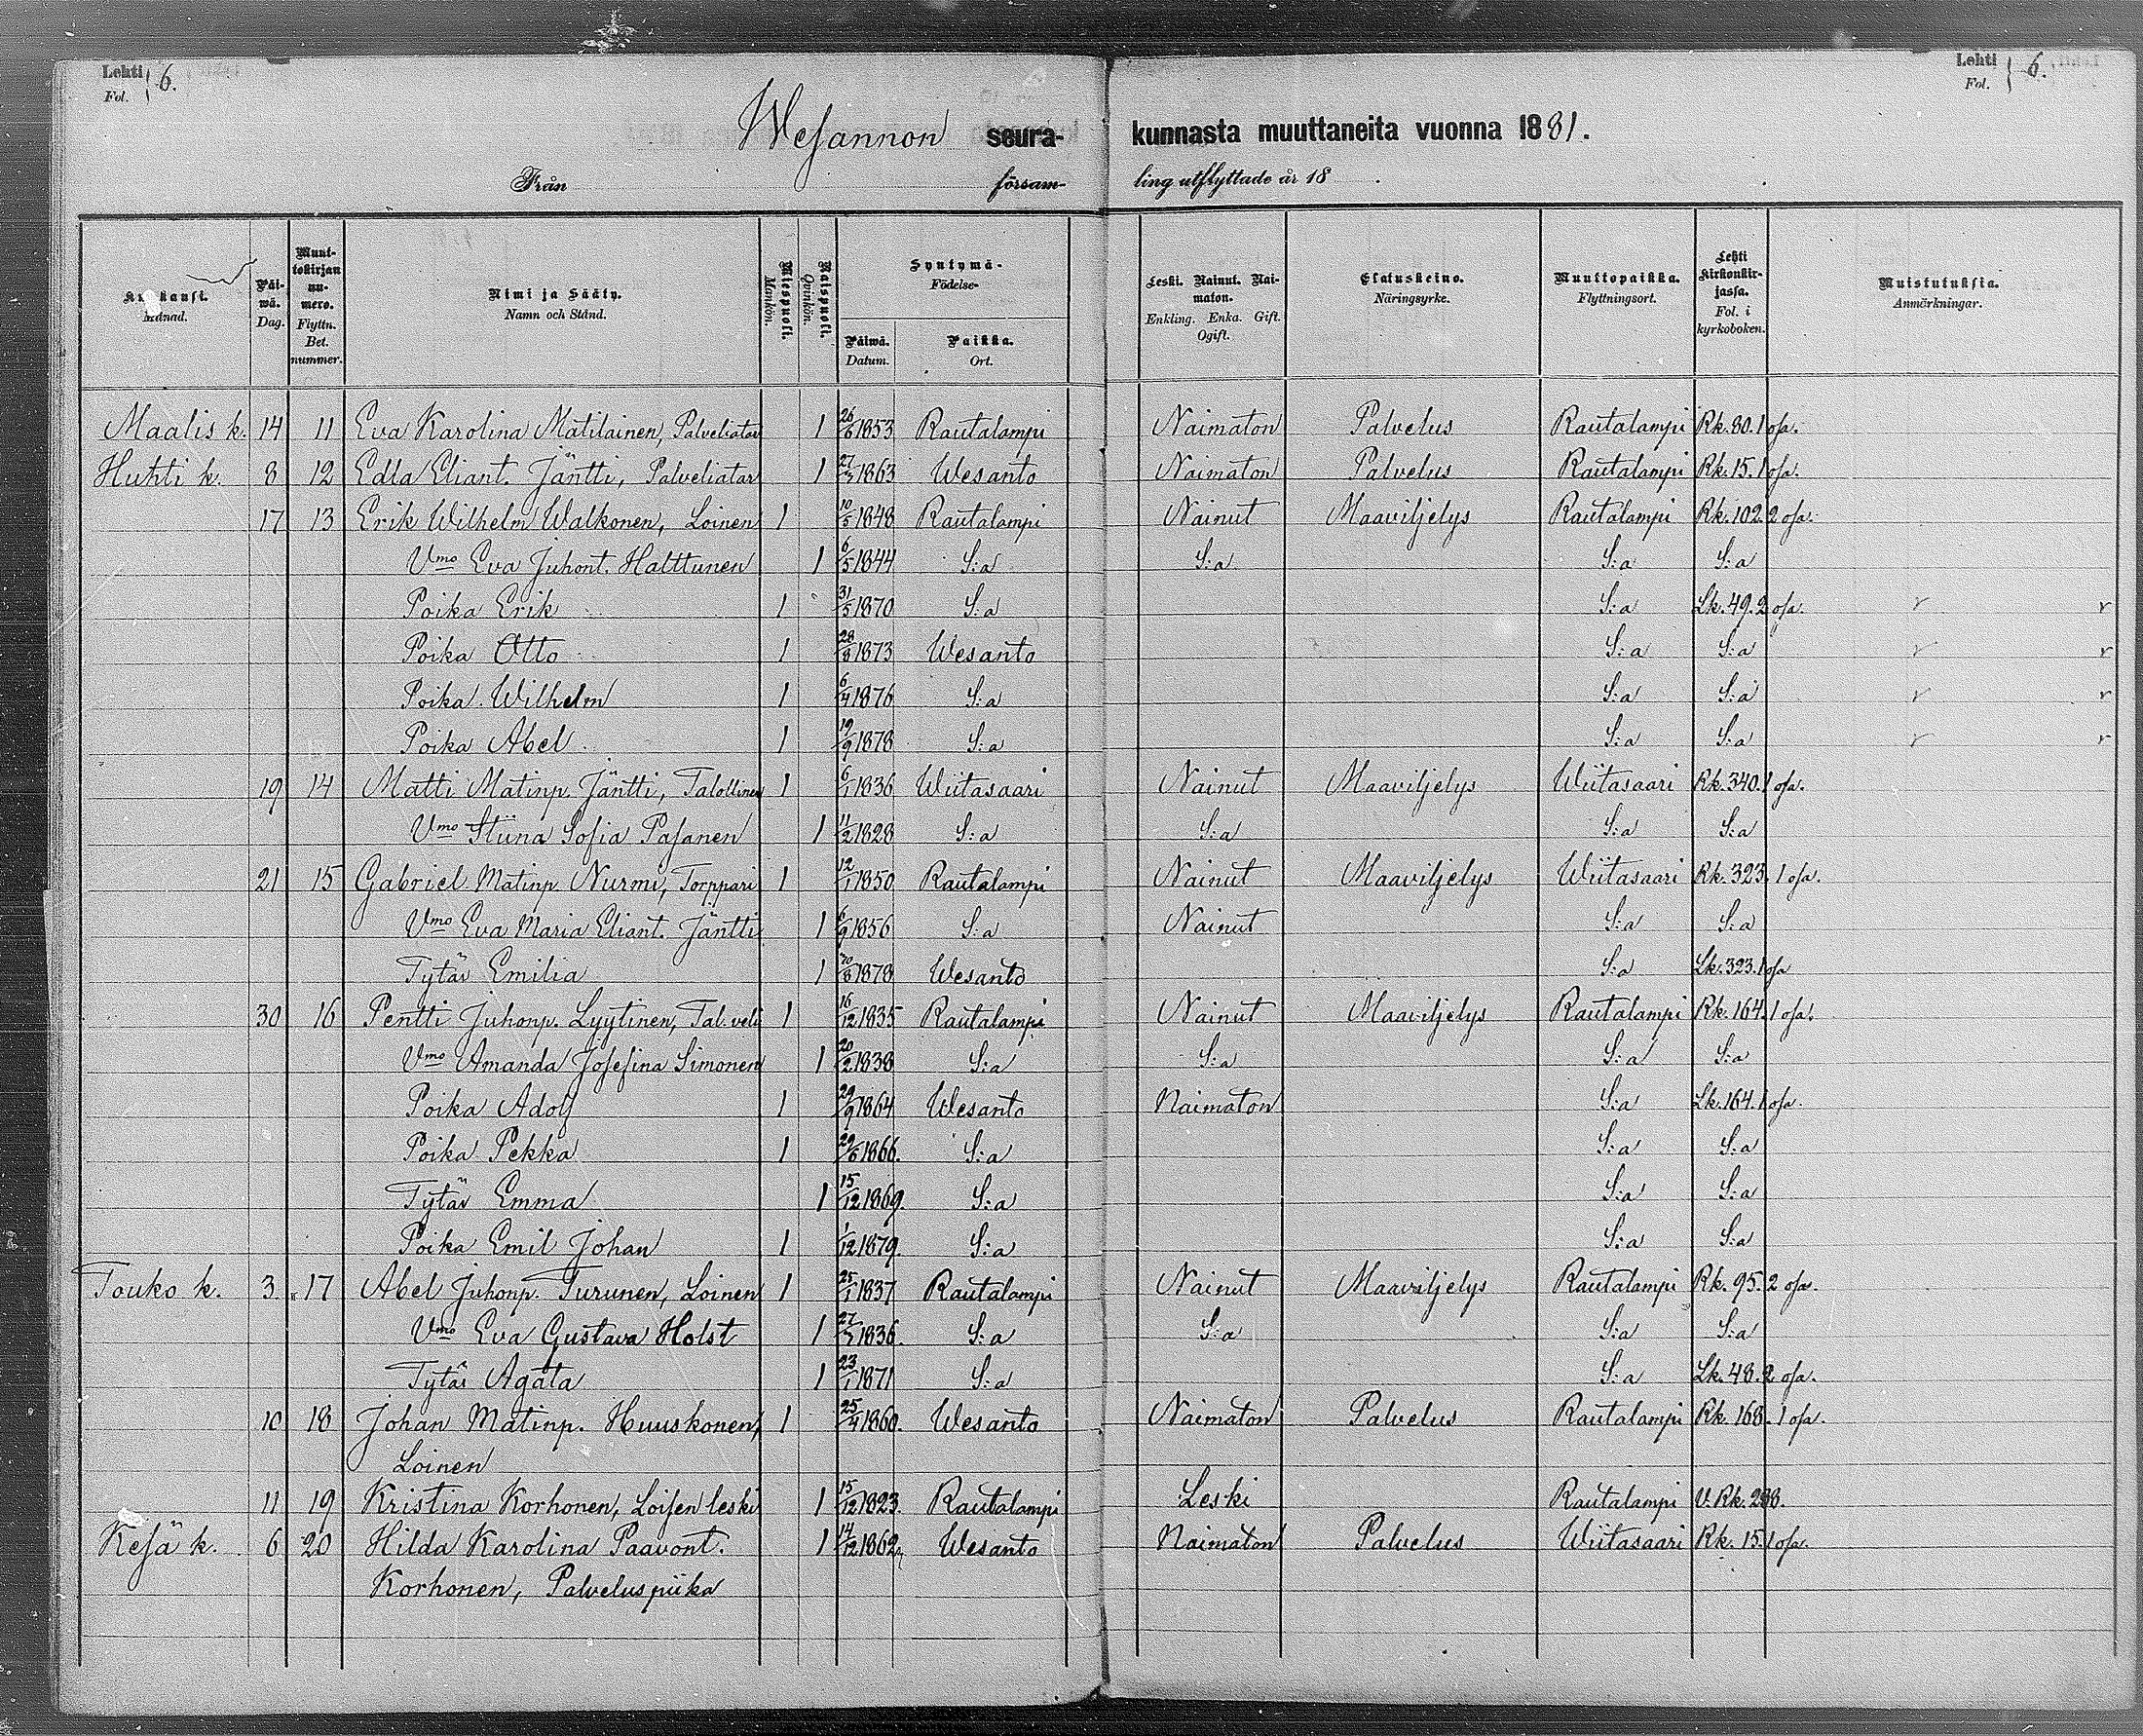 Lehti Fol. 6. Lehti Fol. 6.
Wesannon seura- kunnasta muuttaneita vuonna 1881.
Från försam- ling utflyttade år 18 .
Kuukausi. Månad. Päi-wä. Dag. Muut-tokirjan nu-mero. Flyttn. Bet. nummer. Nimi ja Sääty. Namn och Stånd. Miespuoli. Mankön. Naispuoli. Qvinkön. Syntymä- Födelse- Päiwä. Datum. Paikka. Ort. Leski. Nainut. Nai-maton. Enkling. Enka. Gift. Ogift. Elatuskeino. Näringsyrke. Muuttopaikka. Flyttningsort. Lehti kirkonkir-jassa. Fol. i kyrkoboken. Muistutuksia. Anmärkningar.
Maalis k. 14 11 Eva Karolina Matilainen, Palveliatar 1 26/6 1853 Rautalampi Naimaton Palvelus Rautalampi Rk. 80. 1 osa.
Huhti k. 8 12 Edla Eliant. Jäntti, Palveliatar 1 27/3 1863 Wesanto Naimaton Palvelus Rautalampi Rk. 15. 1 osa.
17 13 Erik Wilhelm Walkonen, Loinen 1 10/5 1848 Rautalampi Nainut Maaviljelys Rautalampi Rk. 102. 2 osa.
Vmo Eva Juhont. Halttunen 1 6/5 1844 S:a S:a S:a S:a
Poika Erik 1 31/5 1870 S:a S:a Lk. 49. 2 osa.
Poika Otto 1 28/8 1873 Wesanto S:a S:a
Poika Wilhelm 1 6/4 1876 S:a S:a S:a
Poika Abel 1 19/9 1878 S:a S:a S:a
19 14 Matti Matinp. Jäntti, Talollinen 1 6/1 1836 Wiitasaari Nainut Maaviljelys Wiitasaari Rk. 340. 1 osa.
Vmo Stiina Sofia Pasanen 1 11/2 1828 S:a S:a S:a S:a
21 15 Gabriel Matinp. Nurmi, Torppari 1 12/1 1850 Rautalampi Nainut Maaviljelys Wiitasaari Rk. 323. 1 osa.
Vmo Eva Maria Eliant. Jäntti 1 6/9 1856 S:a Nainut S:a S:a
Tytär Emilia 1 /8 1878 Wesanto S:a Lk. 323. 1 osa
30 16 Pentti Juhonp. Lyytinen, Tal. veli 1 16/12 1835 Rautalampi Nainut Maaviljelys Rautalampi Rk. 164. 1 osa.
Vmo Amanda Josefina Simonen 1 20/2 1838 S:a S:a S:a S:a
Poika Adolf 1 29/9 1864 Wesanto Naimaton S:a Lk. 164. 1 osa.
Poika Pekka 1 29/6 1866. S:a S:a S:a
Tytär Emma 1 15/12 1869. S:a S:a S:a
Poika Emil Johan 1 1/12 1879. S:a S:a S:a
Touko k. 3 17 Abel Juhonp. Turunen, Loinen 1 25/1 1837 Rautalampi Nainut Maaviljelys Rautalampi Rk. 95. 2 osa.
Vmo Eva Gustava Holst 1 27/ 1836. S:a S:a S:a S:a
Tytär Agata 1 23/1 1871 S:a S:a Lk. 48. 2 osa.
10 18 Johan Matinp. Huuskonen, 1 25/4 1860. Wesanto Naimaton Palvelus Rautalampi Rk. 168. 1 osa.
Loinen
11 19 Kristina Korhonen, Loisen leski 1 15/12 1823. Rautalampi Leski Rautalampi V. Rk.
Kesä k. 6 20 Hilda Karolina Paavont. 1 14/12 1862 Wesanto Naimaton Palvelus Wiitasaari Rk. 15. 1 osa.
Korhonen, Palveluspiika